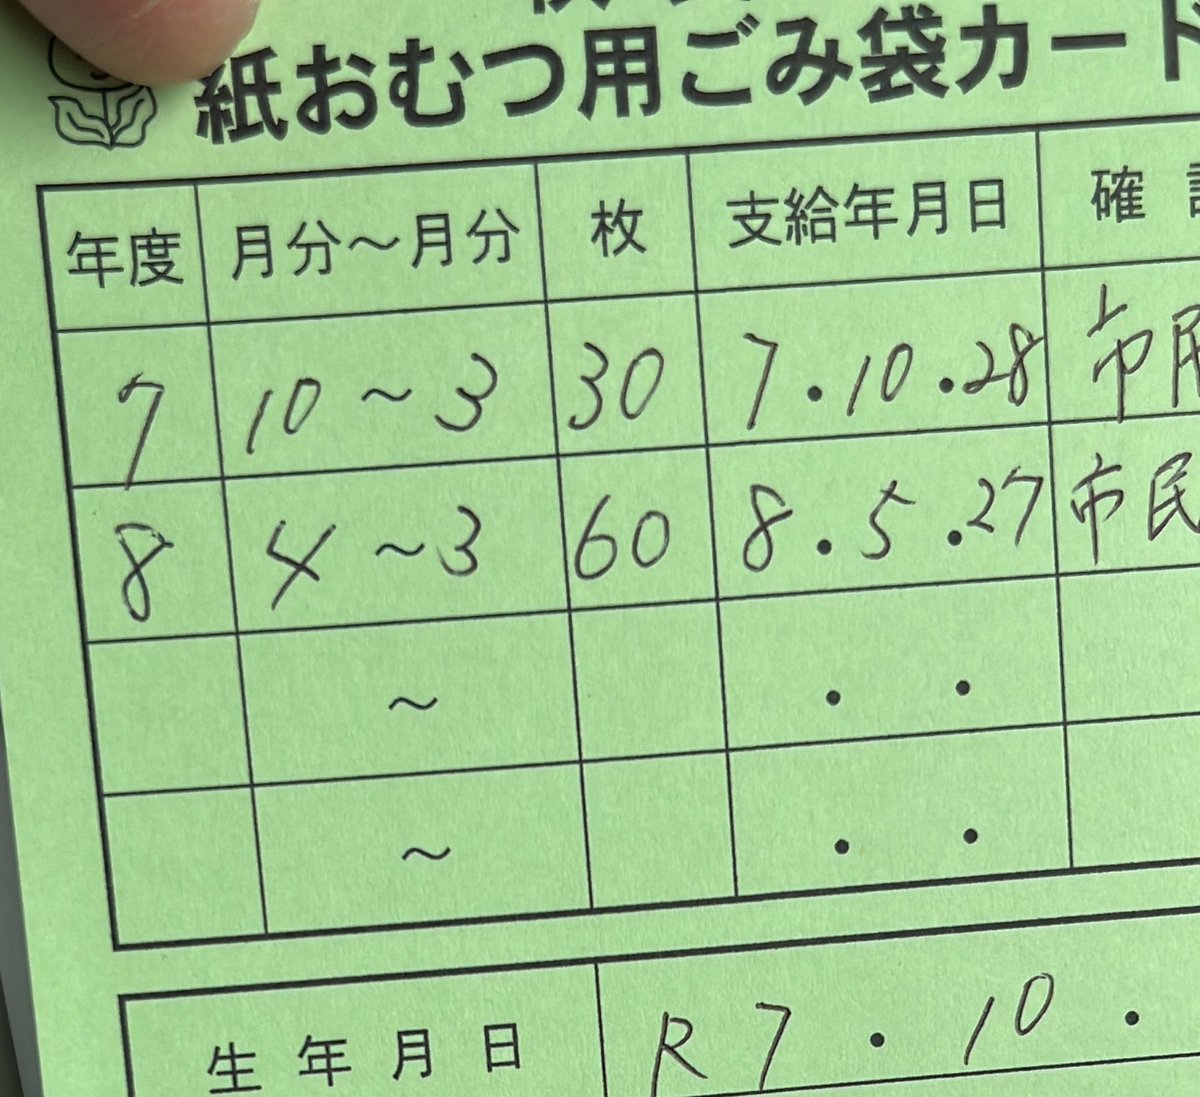 紙おむつ用ごみ袋カード
年度 月分～月分 枚 支給年月日 確
7 10～3 30 7.10.28 市民
8 4～3 60 8.5.27 市民
～ ・ ・
～ ・ ・
生年月日 R7.10.